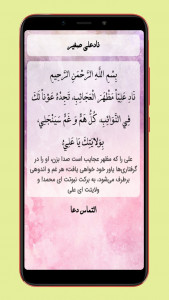 نادعلی صغیر
بِسْمِ اللَّهِ الرَّحْمَنِ الرَّحِيمِ
نَادِ عَلِيّاً مَظْهَرَ الْعَجَائِبِ، تَجِدْهُ عَوْناً لَكَ
فِي النَّوَائِبِ، كُلُّ هَمٍّ وَ غَمٍّ سَيَنْجَلِي،
بِوِلَايَتِكَ يَا عَلِيُّ
علی را که مظهر عجایب است صدا بزن، او را در
گرفتاری‌ها یاور خود خواهی یافت؛ هر غم و اندوهی
برطرف می‌شود، به برکت نبوّتت ای محمد! و
ولایتت ای علی
التماس دعا